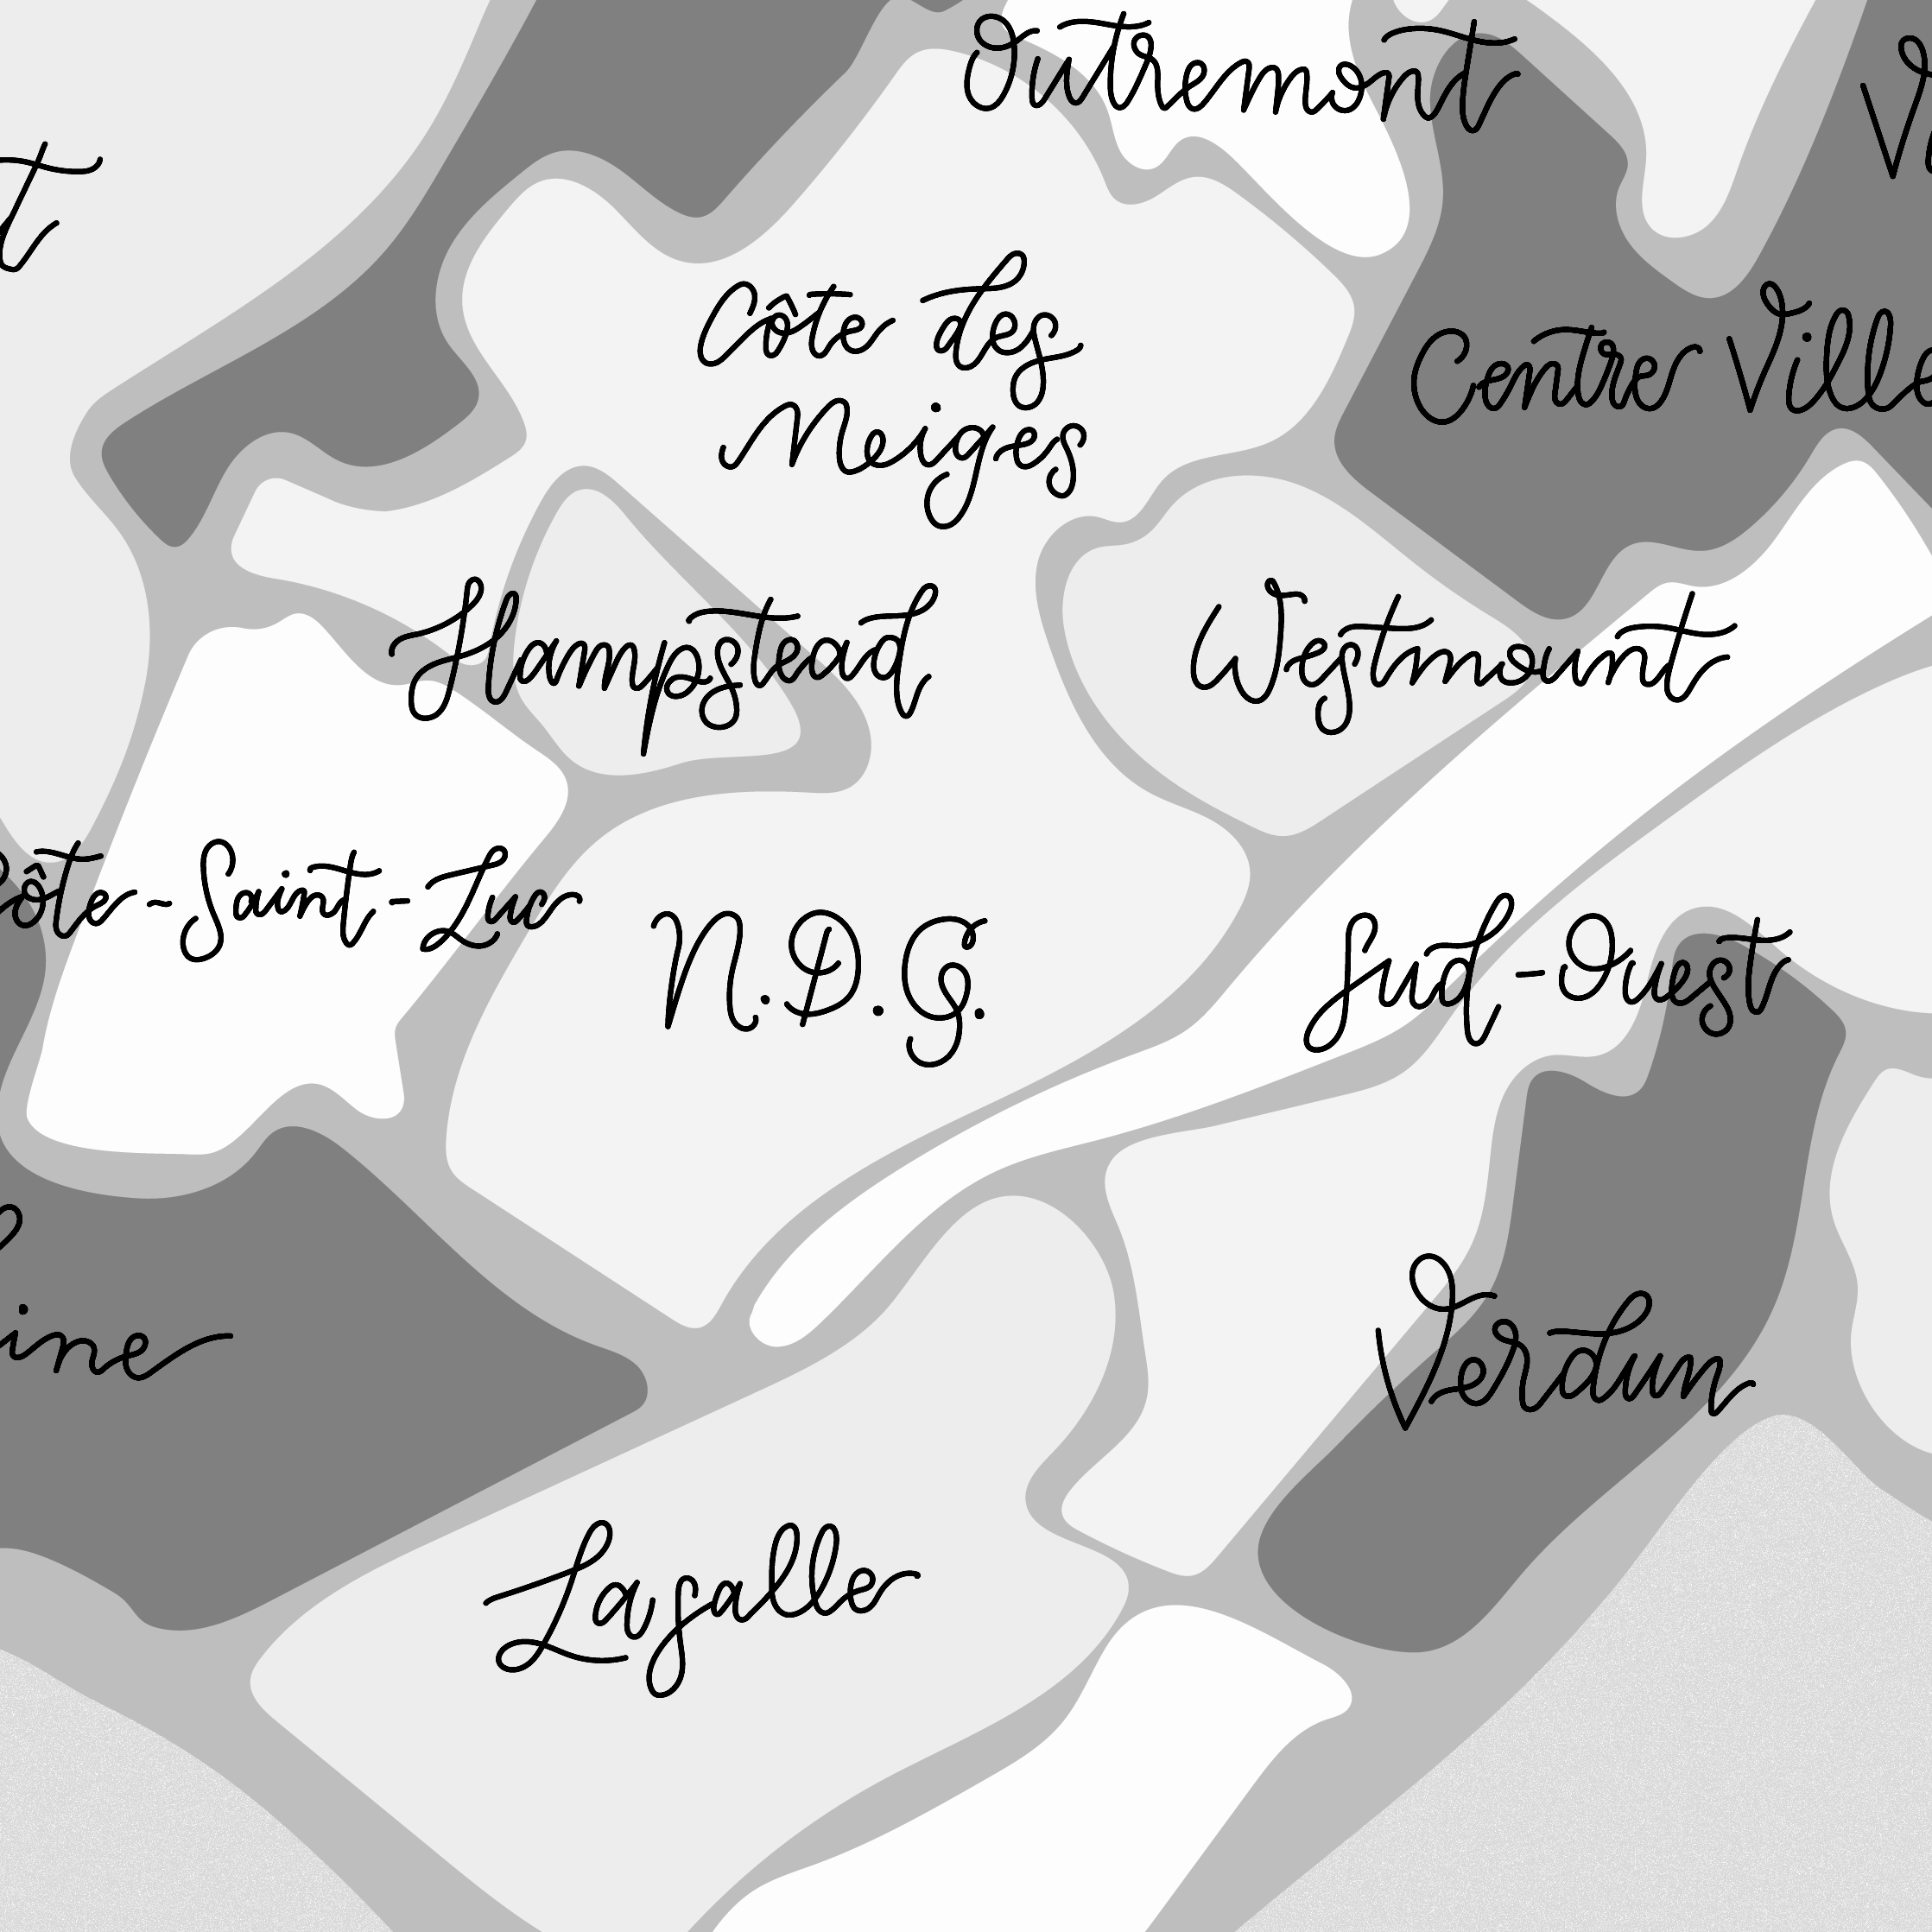 Outremont
Côte des
Neiges
Centre Ville
Hampstead
Westmount
Côte-Saint-Luc
N.D.G.
Sud-Ouest
Verdun
Lasalle